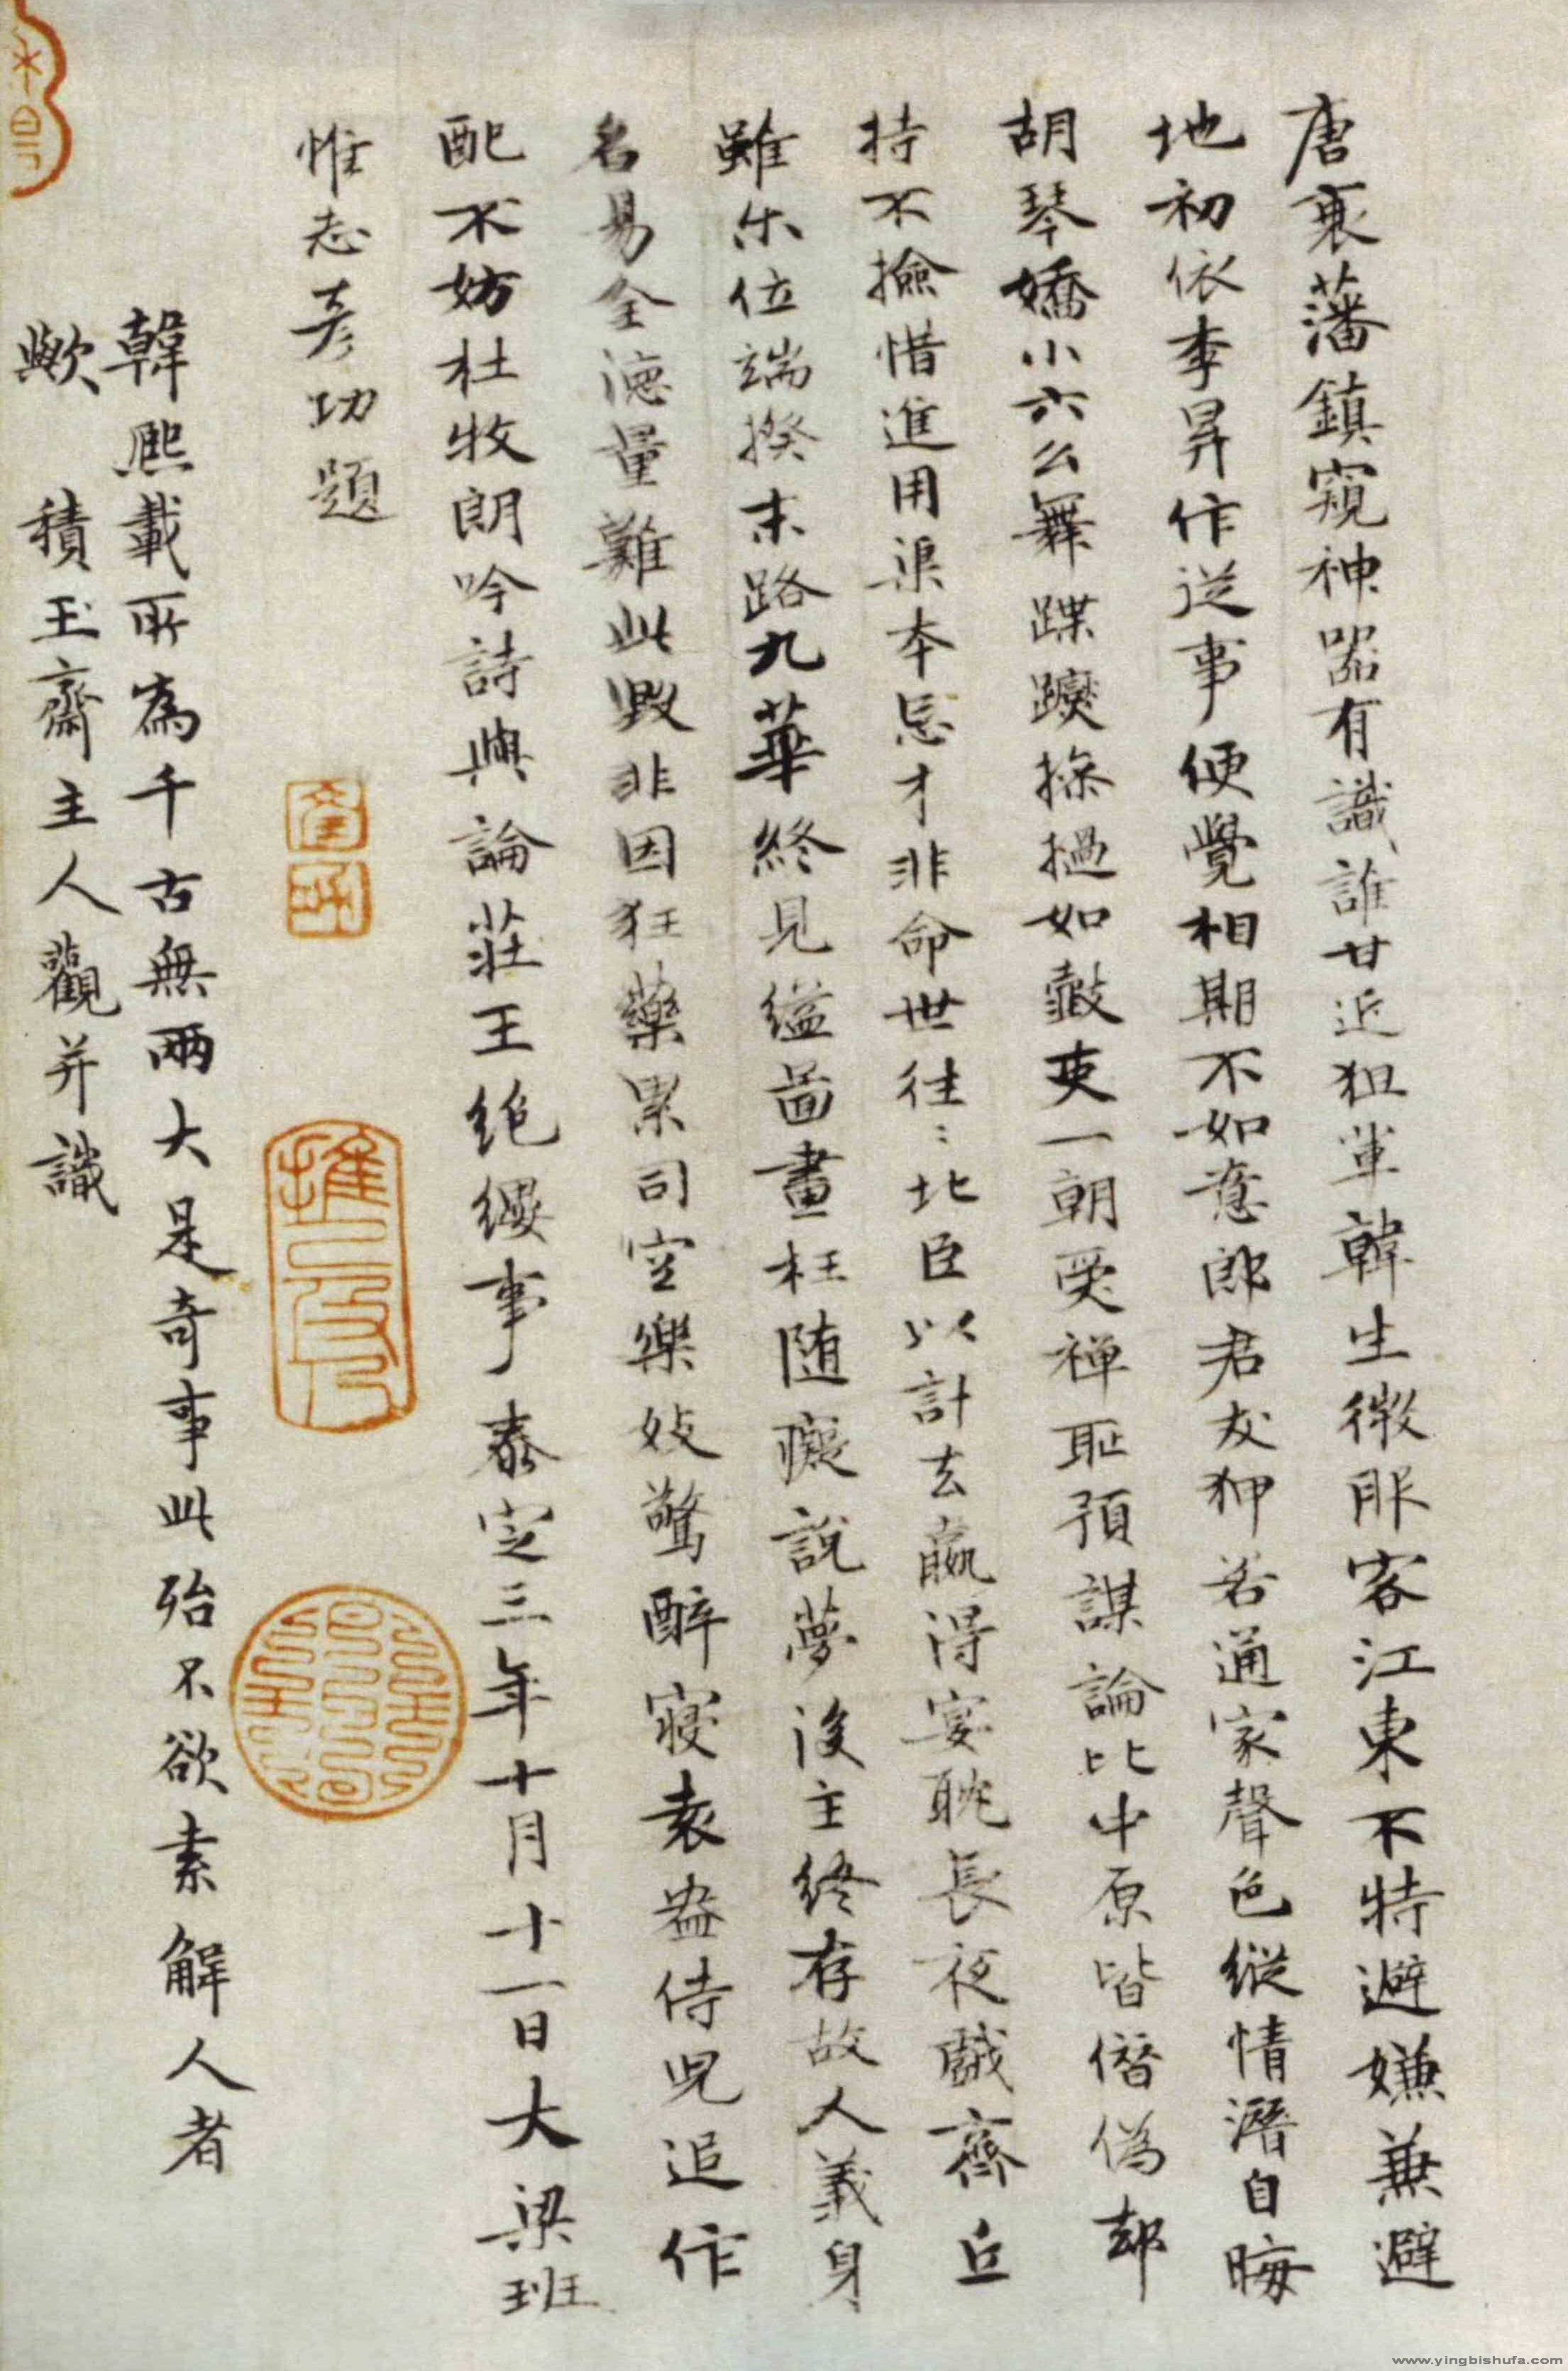 唐衰藩鎮窺神器有識誰甘近狙軍韓生微服客江東不特避嫌兼避
地初依李昇作逆事便覺相期不如意郎君友狎若通家聲色縱情潛自晦
胡琴嬌小六么舞蹀躞摻撾如鼓吏一朝受禪恥預謀論比中原皆僭偽却
持不撿惜進用渠本忌才非命世往〻北臣以計去贏得宴耽長夜戲齊丘
雖尔位端揆末路九華終見縊啚畫枉随癡說夢後主終存故人義身
名易全德量難此毀非因狂藥累司空樂妓驚醉寢袁盎侍児追作
配不妨杜牧朗吟詩與論莊王絕纓事泰定三年十月十一日大梁班
惟志彥功題
韓熙載所為千古無兩大是奇事此殆不欲索解人者
歟 積玉齋主人觀并識
www.yingbishufa.com